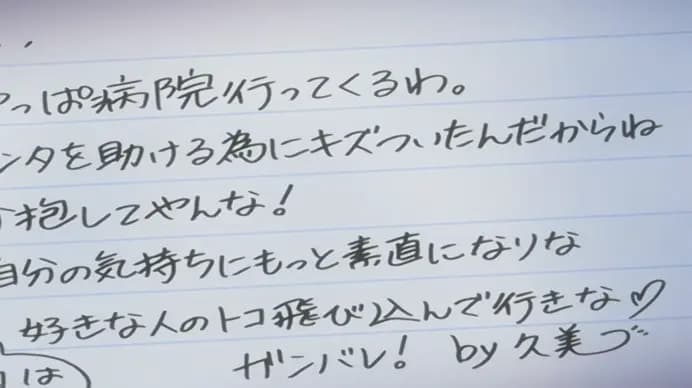 っぱ病院行ってくるわ。
ンタを助ける為にキズついたんだからね
抱してやんな!
自分の気持ちにもっと素直になりな
好きな人のトコ飛び込んで行きな♡
ガンバレ! by 久美
は